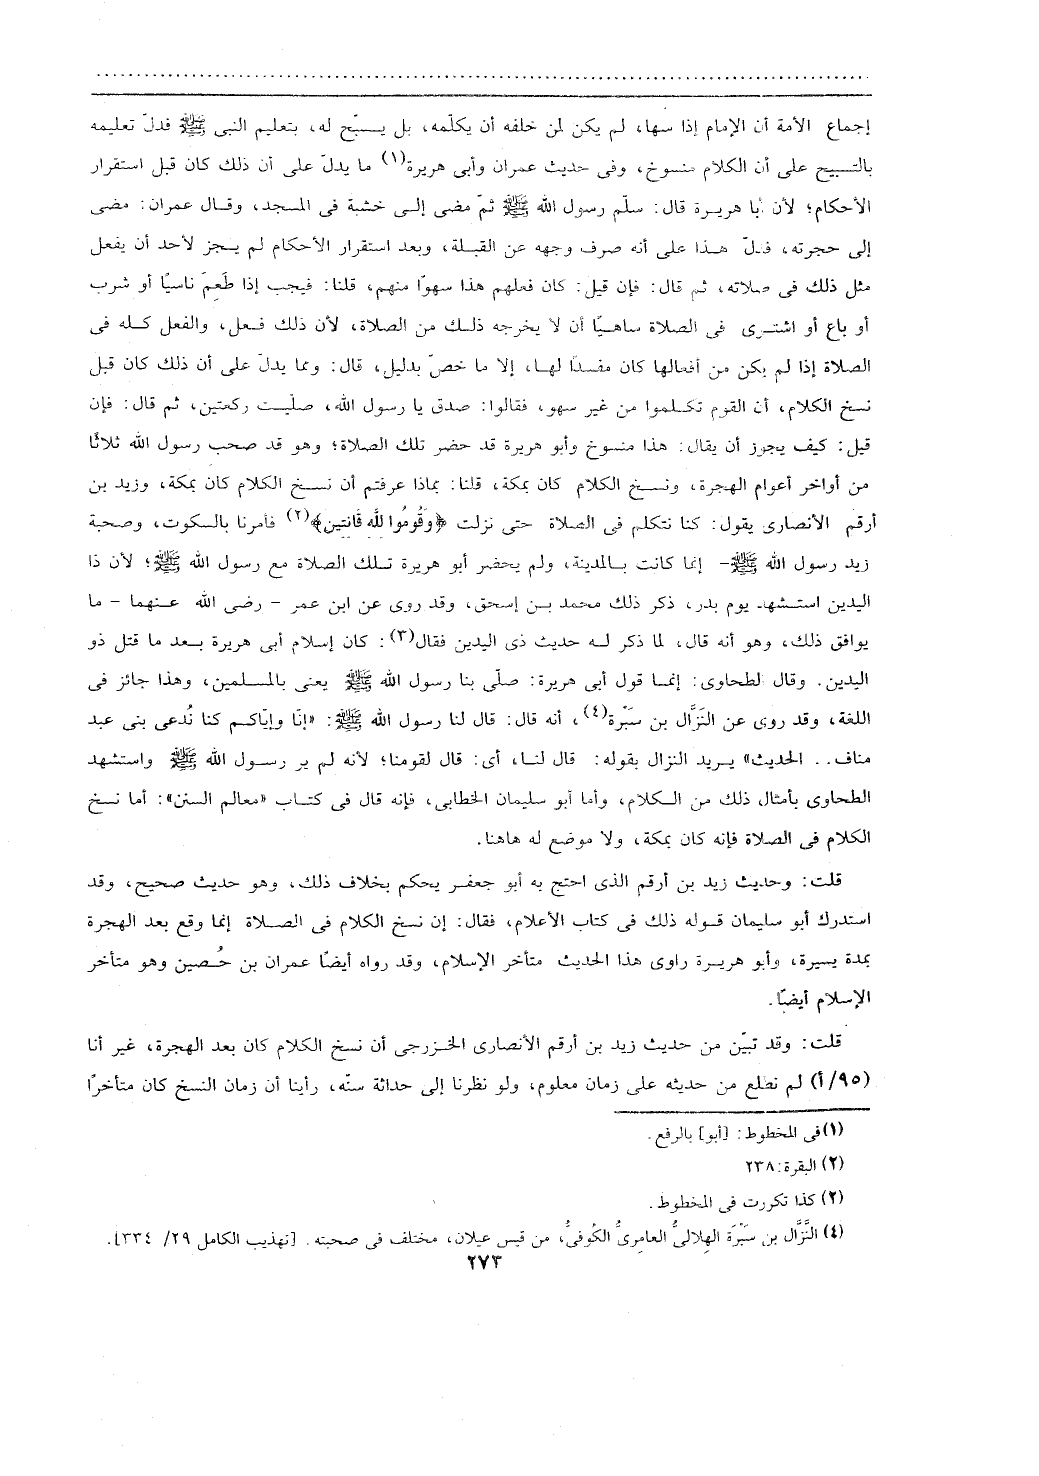 إجماع الأمة أن الإمام إذا سها، لم يكن لمن خلفه أن يكلّمه، بل يسبّح له، بتعليم النبي ﷺ فدلّ تعليمه
بالتسبيح على أن الكلام منسوخ، وفى حديث عمران وأبى هريرة(١) ما يدلّ على أن ذلك كان قبل استقرار
الأحكام؛ لأن أبا هريرة قال: سلّم رسول الله ﷺ ثمّ مضى إلى خشبة فى المسجد، وقال عمران: مضى
إلى حجرته، فدلّ هذا على أنه صرف وجهه عن القبلة، وبعد استقرار الأحكام لم يجز لأحد أن يفعل
مثل ذلك فى صلاته، ثم قال: فإن قيل: كان فعلهم هذا سهوًا منهم، قلنا: فيجب إذا طَعِمَ ناسيًا أو شرب
أو باع أو اشترى فى الصلاة ساهيًا أن لا يخرجه ذلك من الصلاة، لأن ذلك فعل، والفعل كله فى
الصلاة إذا لم يكن من أفعالها كان مفسدًا لها، إلا ما خصّ بدليل، قال: ومما يدلّ على أن ذلك كان قبل
نسخ الكلام، أن القوم تكلموا من غير سهو، فقالوا: صدق يا رسول الله، صلّيت ركعتين، ثم قال: فإن
قيل: كيف يجوز أن يقال: هذا منسوخ وأبو هريرة قد حضر تلك الصلاة؛ وهو قد صحب رسول الله ثلاثًا
من أواخر أعوام الهجرة، ونسخ الكلام كان بمكة، قلنا: بماذا عرفتم أن نسخ الكلام كان بمكة، وزيد بن
أرقم الأنصارى يقول: كنا نتكلم فى الصلاة حتى نزلت ﴿وَقُومُوا لله قَانتين﴾(٢) فأمرنا بالسكوت، وصحبة
زيد رسول الله ﷺ- إنما كانت بالمدينة، ولم يحضر أبو هريرة تلك الصلاة مع رسول الله ﷺ؛ لأن ذا
اليدين استشهد يوم بدر، ذكر ذلك محمد بن إسحق، وقد روى عن ابن عمر - رضى الله عنهما - ما
يوافق ذلك، وهو أنه قال، لما ذكر له حديث ذى اليدين فقال(٣): كان إسلام أبى هريرة بعد ما قتل ذو
اليدين. وقال لطحاوى: إنما قول أبى هريرة: صلّى بنا رسول الله ﷺ يعنى بالمسلمين، وهذا جائز فى
اللغة، وقد روى عن النَزَّال بن سَبْرة(٤)، أنه قال: قال لنا رسول الله ﷺ: «إنّا وإيّاكم كنا نُدعى بنى عبد
مناف.. الحديث» يريد النزال بقوله: قال لنا، أى: قال لقومنا؛ لأنه لم ير رسول الله ﷺ واستشهد
الطحاوى بأمثال ذلك من الكلام، وأما أبو سليمان الخطابى، فإنه قال فى كتاب «معالم السنن»: أما نسخ
الكلام فى الصلاة فإنه كان بمكة، ولا موضع له هاهنا.
قلت: وحديث زيد بن أرقم الذى احتج به أبو جعفر يحكم بخلاف ذلك، وهو حديث صحيح، وقد
استدرك أبو سليمان قوله ذلك فى كتاب الأعلام، فقال: إن نسخ الكلام فى الصلاة إنما وقع بعد الهجرة
بمدة يسيرة، وأبو هريرة راوى هذا الحديث متأخر الإسلام، وقد رواه أيضًا عمران بن حُصين وهو متأخر
الإسلام أيضًا.
قلت: وقد تبيّن من حديث زيد بن أرقم الأنصارى الخزرجى أن نسخ الكلام كان بعد الهجرة، غير أنا
(٩٥/أ) لم نطلع من حديثه على زمان معلوم، ولو نظرنا إلى حداثة سنّه، رأينا أن زمان النسخ كان متأخرًا
(١) فى المخطوط: [أبو] بالرفع.
(٢) البقرة: ٢٣٨
(٢) كذا تكررت فى المخطوط.
(٤) النَّزَّال بن سَبْرَة الهِلاليُّ العامِرىُّ الكُوفىُّ، من قيس عيلان، مختلف فى صحبته. [تهذيب الكامل ٢٩/ ٣٣٤].
٢٧٣